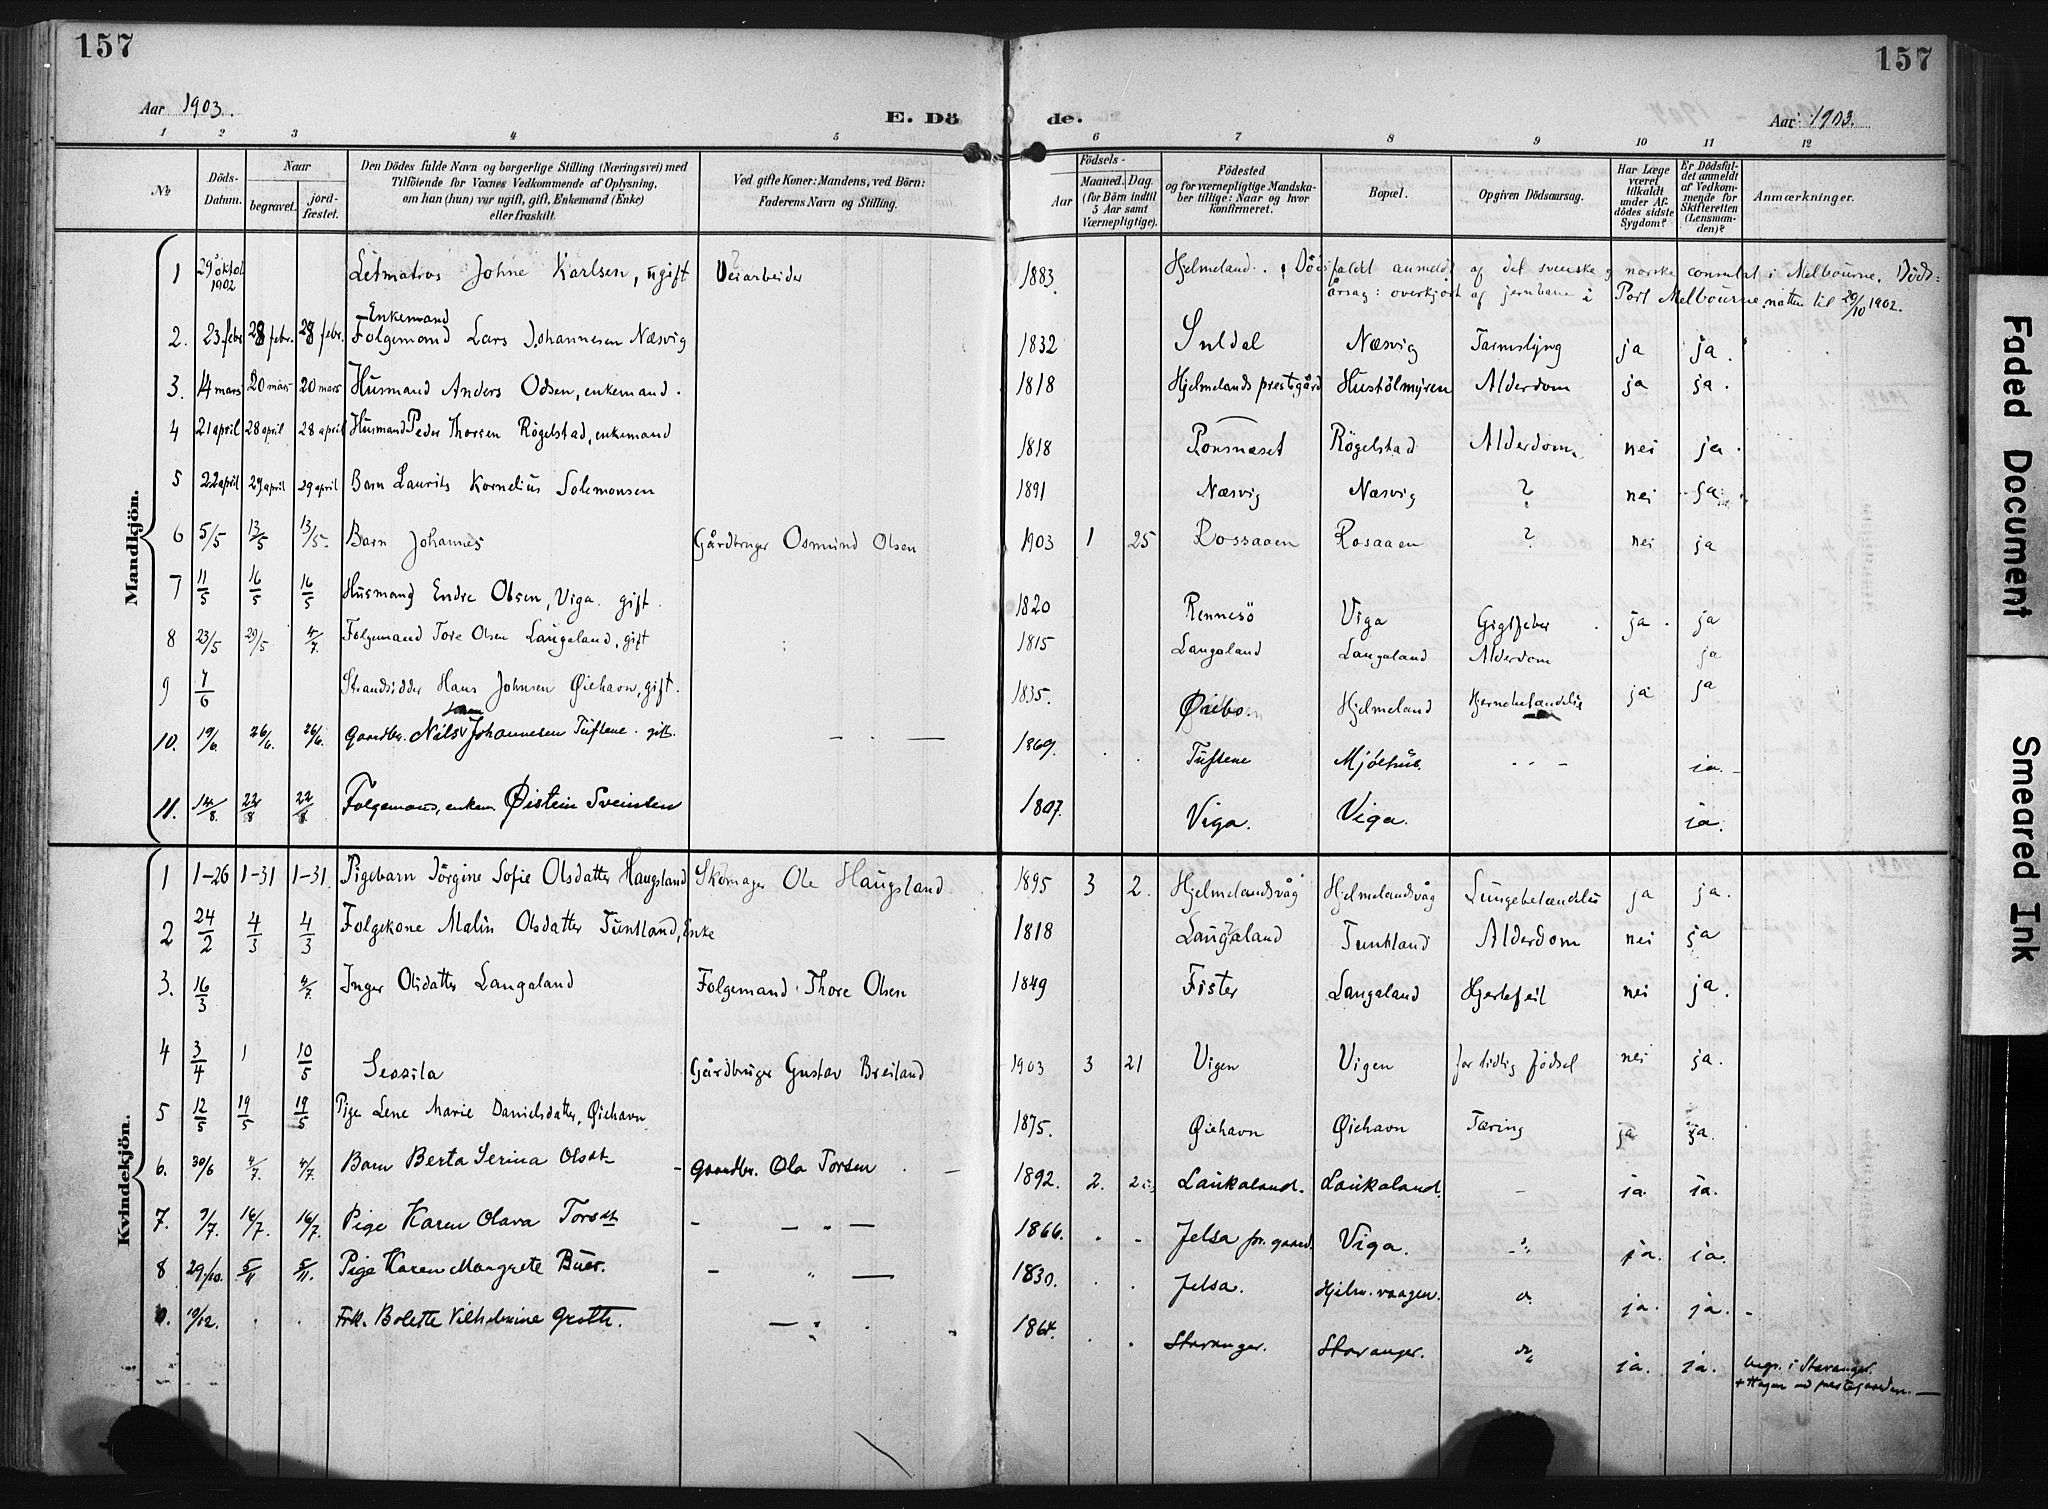 157
157
Aar 1903.
E. Dö
de.
Aar 1903.
1 2 3 4 5 6 7 8 9 10 11 12
No
Döds-Datum.
Naar
begravet.
jord-fæstet.
Den Dödes fulde Navn og borgerlige Stilling (Næringsvei) med
Tilföiende for Voxnes Vedkommende af Oplysning,
om han (hun) var ugift, gift, Enkemand (Enke)
eller fraskilt.
Ved gifte Koner: Mandens, ved Börn:
Faderens Navn og Stilling.
Födsels-
Aar
Maaned. Dag.
(for Börn indtil
5 Aar samt
Værnepligtige).
Födested
og for værnepligtige Mandska-
ber tillige: Naar og hvor
konfirmeret.
Bopæl.
Opgiven Dödsaarsag.
Har Læge
været
tilkaldt
under Af-
dödes sidste
Sygdom?
Er Dödsfal-
det anmeldt
af Vedkom-
mende for
Skifteretten
(Lensman-
den)?
Anmærkninger.
Mandkjön.
1 29 oktob 1902 Letmatros Johne Karlsen, ugift Veiarbeider 1883 Hjelmeland. Dödsfaldet anmeldt af det svenske og norske consulat i Melbourne. Döds-
årsag: overkjört af jernbane i Port Melbourne natten til 29/10 1902.
Enkemand
2. 23 febr 28 febr. 28 febr. Folgemand Lars Johannesen Næsvig 1832 Suldal Næsvig Tarmslyng ja ja.
3. 14 mars 20 mars 20 mars Husmand Anders Odsen, enkemand. 1818 Hjelmelands prestegård Husholmyren Alderdom ja ja.
4 21 april 28 april 28 april Husmand Peder Thorsen Rögelstad, enkemand 1818 Ponsnæset Rögelstad Alderdom. nei ja.
5 22 april 29 april 29 april Barn Laurits Kornelius Solemonsen 1891 Næsvig Næsvig ? nei ja
6 5/5 13/5 13/5. Barn Johannes Gårdbruger Osmund Olsen 1903 1 25 Rossaaen Rosaaen ? nei ja
7 11/5 16/5 16/5 Husmand Endre Olsen, Viga. gift. 1820 Rennesö Viga Gigtfeber ja. ja
8 23/5 29/5 4/7. Folgemand Tore Olsen Laugaland, gift 1815 Langaland Langaland Alderdom ja
9 7/6 Strandsidder Hans Johnsen Øiehavn, gift. 1835. Øiebo. Hjelmeland Hjernebetændelse ja ja
10. 19/6. 26/6. 26/6. Gaardbr. Nils Johannesen Tuftene. gift. 1869. Tuftene Mjölhus. ja.
11. 14/8. 22/8 22/8 Folgemand, enkem. Øistein Svensen 1807. Viga. Viga. ja.
Kvindekjön.
1 1-26 1-31 1-31. Pigebarn Jörgine Sofie Olsdatter Haugsland Skomager Ole Haugsland 1895 3 2. Hjelmelandsvåg Hjelmelandsvåg Lungebetændelse ja ja.
2 24/2 4/3 4/3 Folgekone Malin Olsdatter Tuntland, Enke 1818 Laugaland Tuntland Alderdom nei ja
3. 16/3 4/7. Inger Olsdatter Langaland Folgemand Thore Olsen 1849 Fister Langaland Hjertefeil nei ja.
4 3/4 1 10/5 Sessila Gårdbruger Gustav Breiland 1903 3 21 Vigen Vigen for tidlig födsel nei ja.
5 12/5 19/5 19/5 Pige Lene Marie Danielsdatter, Øiehavn 1875. Øiehavn Øiehavn Tæring ja ja.
6. 30/6 4/7. 4/7. Barn Berta Serina Olsdt Gaardbr. Ola Torsen 1892. 2. Laukaland. Laukaland. ja. ja.
7. 9/7. 16/7. 16/7. Pige Karen Olava Torsdt 1866. Jelsa pr.gaard. Viga. ja. ja.
8 29/10. 5/11 5/11. Pige Karen Margrete Buer. 1830. Jelsa. Hjelm.vaagen. ja. ja.
9. 19/12. Frk. Bolette Vilhelmine Groth. 1864. Stavanger. Stavanger. ja. ja. begr. i Stavanger.
+ Hagen ved prestegaarden.
Faded Document
Smeared Ink